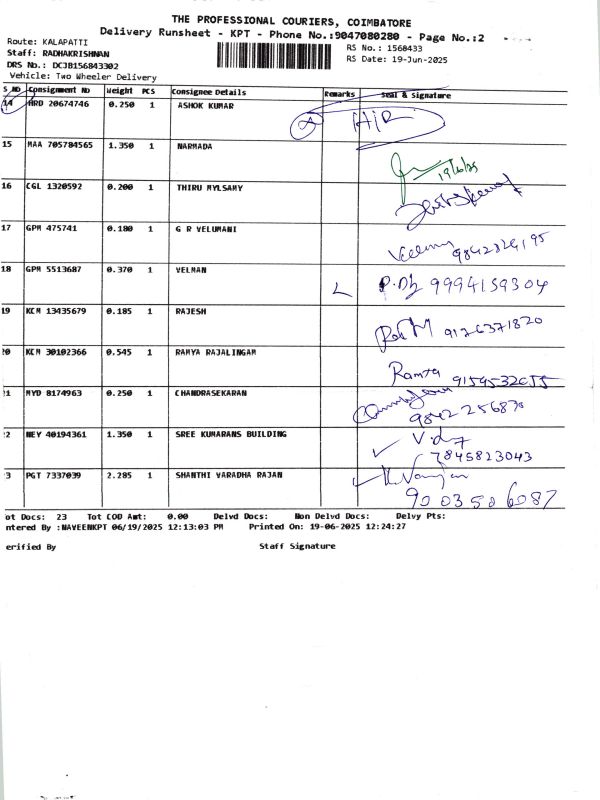 THE PROFESSIONAL COURIERS, COIMBATORE
Delivery Runsheet - KPT - Phone No.:9047080280 - Page No.:2
Route: KALAPATTI
Staff: RADHAKRISHNAN
DRS No.: DCJB156843302
Vehicle: Two Wheeler Delivery
RS No.: 1568433
RS Date: 19-Jun-2025
S.NO Consignment No Weight PCS Consignee Details Remarks Seal & Signature
14 HRD 20674746 0.250 1 ASHOK KUMAR H/R
15 MAA 705784565 1.350 1 NARMADA 19/6/25
16 CGL 1320592 0.200 1 THIRU MYLSAMY
17 GPM 475741 0.180 1 G R VELUMANI 9842324195
18 GPM 5513687 0.370 1 VELMAN 9994159304
19 KCM 13435679 0.185 1 RAJESH 9126371820
20 KCM 30102366 0.545 1 RAMYA RAJALINGAM Ramya
21 MYD 8174963 0.250 1 CHANDRASEKARAN
22 NEY 40194361 1.350 1 SREE KUMARANS BUILDING 7845823043
23 PGT 7337039 2.285 1 SHANTHI VARADHA RAJAN 9003506087
ot Docs: 23 Tot COD Amt: 0.00 Delvd Docs: Non Delvd Docs: Delvy Pts:
ntered By :NAVEENKPT 06/19/2025 12:13:03 PM Printed On: 19-06-2025 12:24:27
erified By Staff Signature